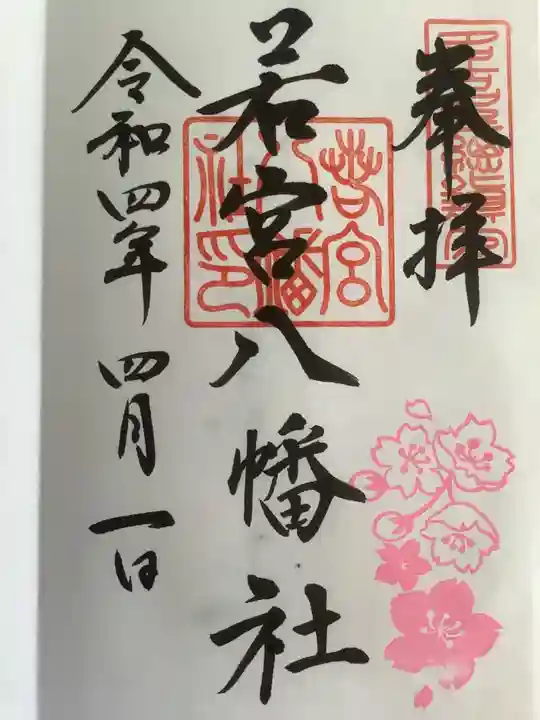 奉拝
若宮八幡社
若宮八幡社印
令和四年四月一日